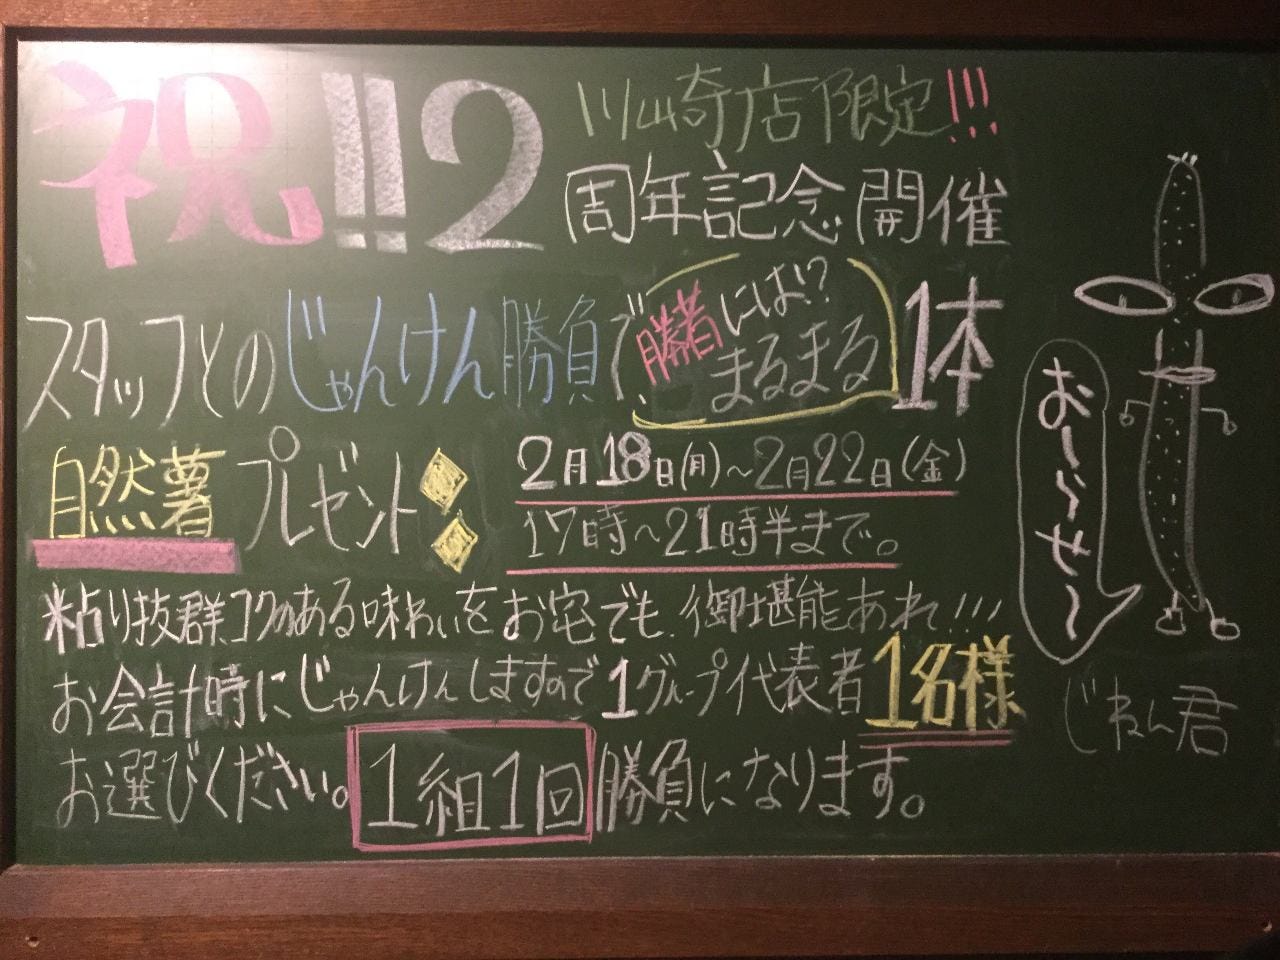 祝!!2
川崎店限定!!!
周年記念開催
スタッフとのじゃんけん勝負で、勝者には!?まるまる1本
自然薯プレゼント
2月18日(月)~2月22日(金)
17時~21時半まで。
粘り抜群コクのある味わいをお宅でも、御堪能あれ!!!
お会計時にじゃんけんしますので1グループ代表者1名様
お選びください。1組1回勝負になります。
お〜らせ〜
じねん君